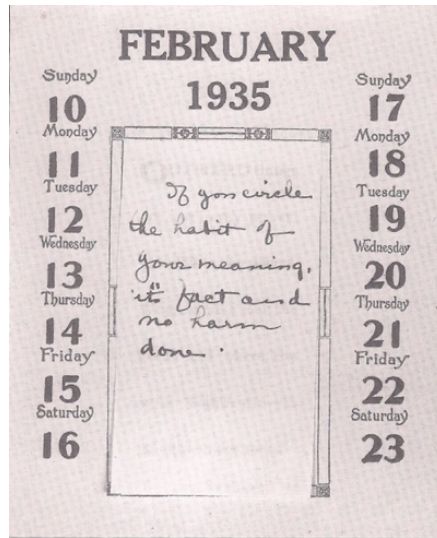 FEBRUARY
1935
Sunday
10
Monday
11
Tuesday
12
Wednesday
13
Thursday
14
Friday
15
Saturday
16
If you circle
the habit of
your meaning,
it's fact and
no harm
done.
Sunday
17
Monday
18
Tuesday
19
Wednesday
20
Thursday
21
Friday
22
Saturday
23